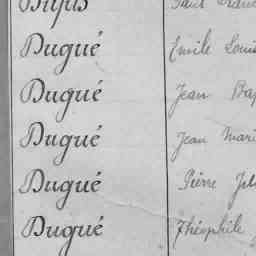 Dugué Emile Louis
Dugué Jean Bap
Dugué Jean Mari
Dugué Pierre
Dugué Théophile